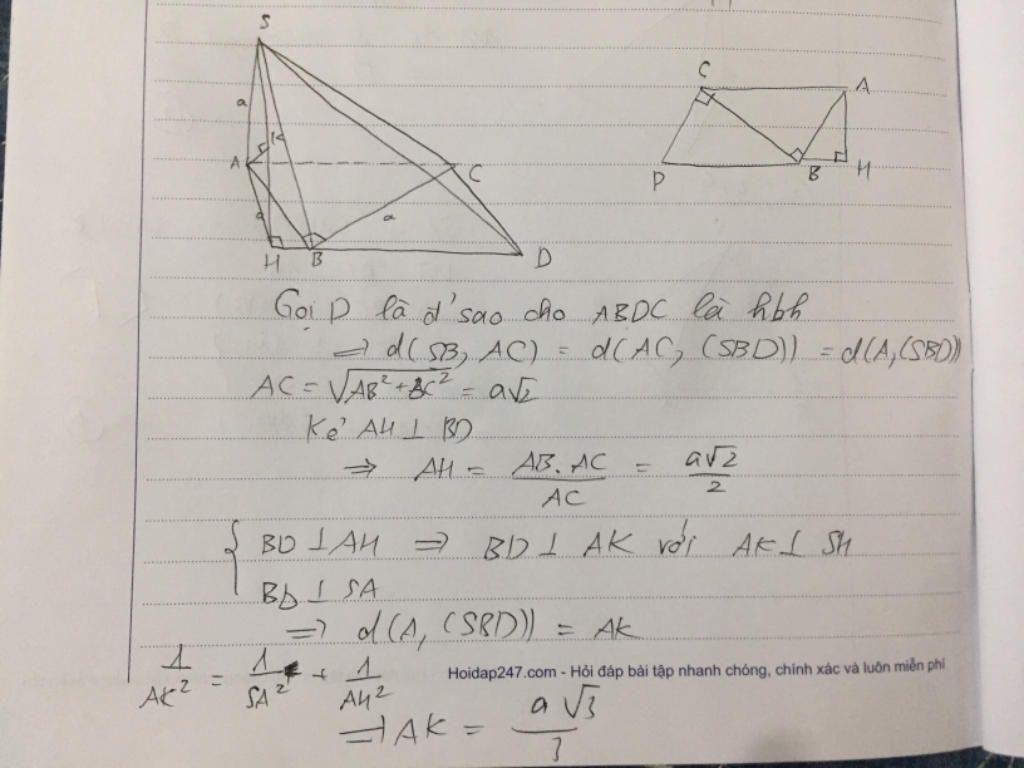 S
a
K
A
C
a
a
H B D
C
A
P B H
Gọi D là đ' sao cho ABDC là hbh
=> d(SB, AC) = d(AC, (SBD)) = d(A,(SBD))
AC = √(AB² + BC²) = a√2
Kẻ AH ⊥ BD
=> AH = AB. AC / AC = a√2 / 2
{ BD ⊥ AH => BD ⊥ AK với AK ⊥ SH
BD ⊥ SA
=> d(A, (SBD)) = AK
1/AK² = 1/SA² + 1/AH²
Hoidap247.com - Hỏi đáp bài tập nhanh chóng, chính xác và luôn miễn phí
=> AK = a√3 / 3